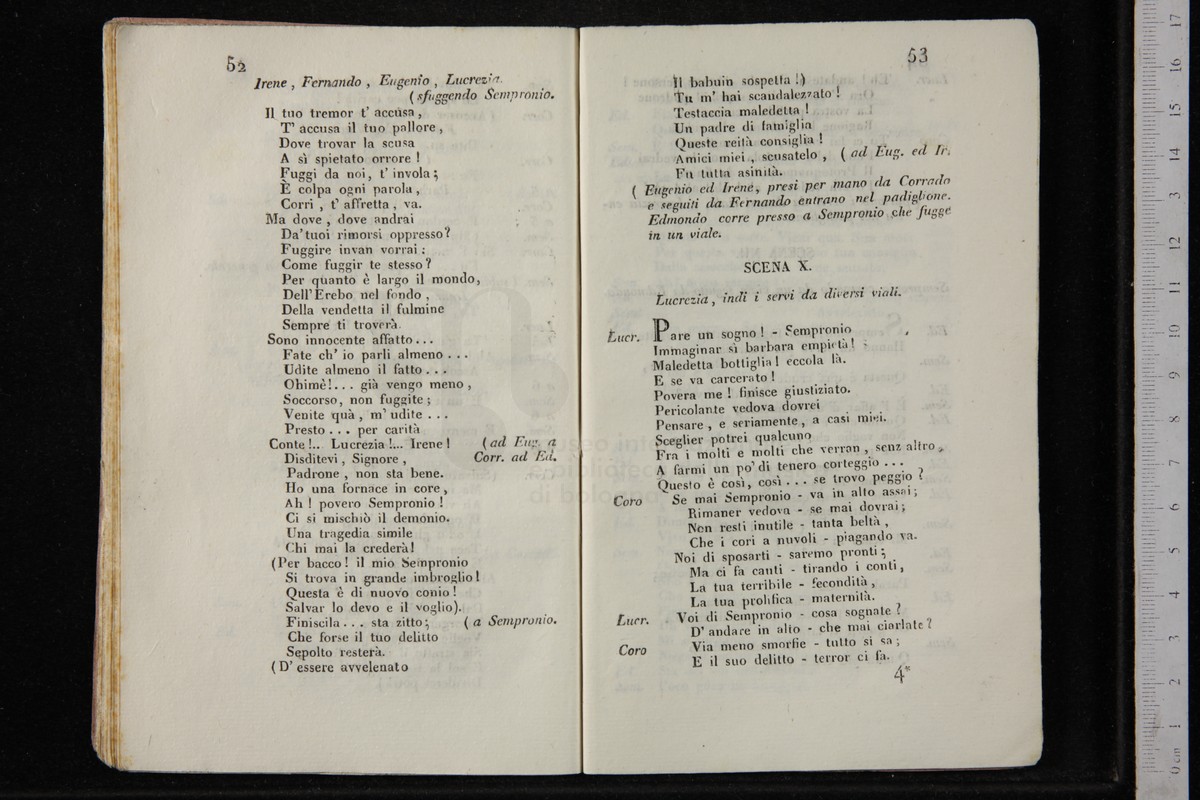 52
Irene , Fernando , Eugenio , Lucrezia.
( sfuggendo Sempronio.
Il tuo tremor t' accusa ,
T' accusa il tuo pallore ,
Dove trovar la scusa
A sì spietato orrore !
Fuggi da noi, t' invola ;
È colpa ogni parola ,
Corri , t' affretta , va.
Ma dove , dove andrai
Da' tuoi rimorsi oppresso ?
Fuggire invan vorrai :
Come fuggir te stesso ?
Per quanto è largo il mondo,
Dell' Erebo nel fondo ,
Della vendetta il fulmine
Sempre ti troverà.
Sono innocente affatto . . .
Fate ch' io parli almeno . . .
Udite almeno il fatto . . .
Ohimè ! . . . già vengo meno ,
Soccorso, non fuggite ;
Venite quà , m' udite . . .
Presto . . . per carità
Conte !... Lucrezia !... Irene ! ( ad Eug. a
Disditevi , Signore , Corr. ad Ed.
Padrone , non sta bene.
Ho una fornace in core ,
Ah ! povero Sempronio !
Ci si mischiò il demonio.
Una tragedia simile
Chi mai la crederà !
(Per bacco ! il mio Sempronio
Si trova in grande imbroglio !
Questa è di nuovo conio !
Salvar lo devo e il voglio).
Finiscila . . . sta zitto ; ( a Sempronio.
Che forse il tuo delitto
Sepolto resterà.
( D' essere avvelenato
53
Il babuin sospetta !)
Tu m' hai scandalezzato !
Testaccia maledetta !
Un padre di famiglia
Queste reità consiglia !
Amici miei , scusatelo , ( ad Eug. ed Ir.
Fu tutta asinità.
( Eugenio ed Irene, presi per mano da Corrado
e seguiti da Fernando entrano nel padiglione.
Edmondo corre presso a Sempronio che fugge
in un viale.
SCENA X.
Lucrezia , indi i servi da diversi viali.
Lucr. Pare un sogno ! - Sempronio
Immaginar sì barbara empietà !
Maledetta bottiglia ! eccola là.
E se va carcerato !
Povera me ! finisce giustiziato.
Pericolante vedova dovrei
Pensare , e seriamente , a casi miei.
Sceglier potrei qualcuno
Fra i molti e molti che verran , senz' altro ,
A farmi un po' di tenero corteggio . . .
Questo è così, così . . . se trovo peggio ?
Coro Se mai Sempronio - va in alto assai ;
Rimaner vedova - se mai dovrai ;
Non resti inutile - tanta beltà ,
Che i cori a nuvoli - piagando va.
Noi di sposarti - saremo pronti ;
Ma ci fa cauti - tirando i conti ,
La tua terribile - fecondità ,
La tua prolifica - maternità.
Lucr. Voi di Sempronio - cosa sognate ?
D' andare in alto - che mai ciarlate ?
Coro Via meno smorfie - tutto si sa ;
E il suo delitto - terror ci fa.
4*